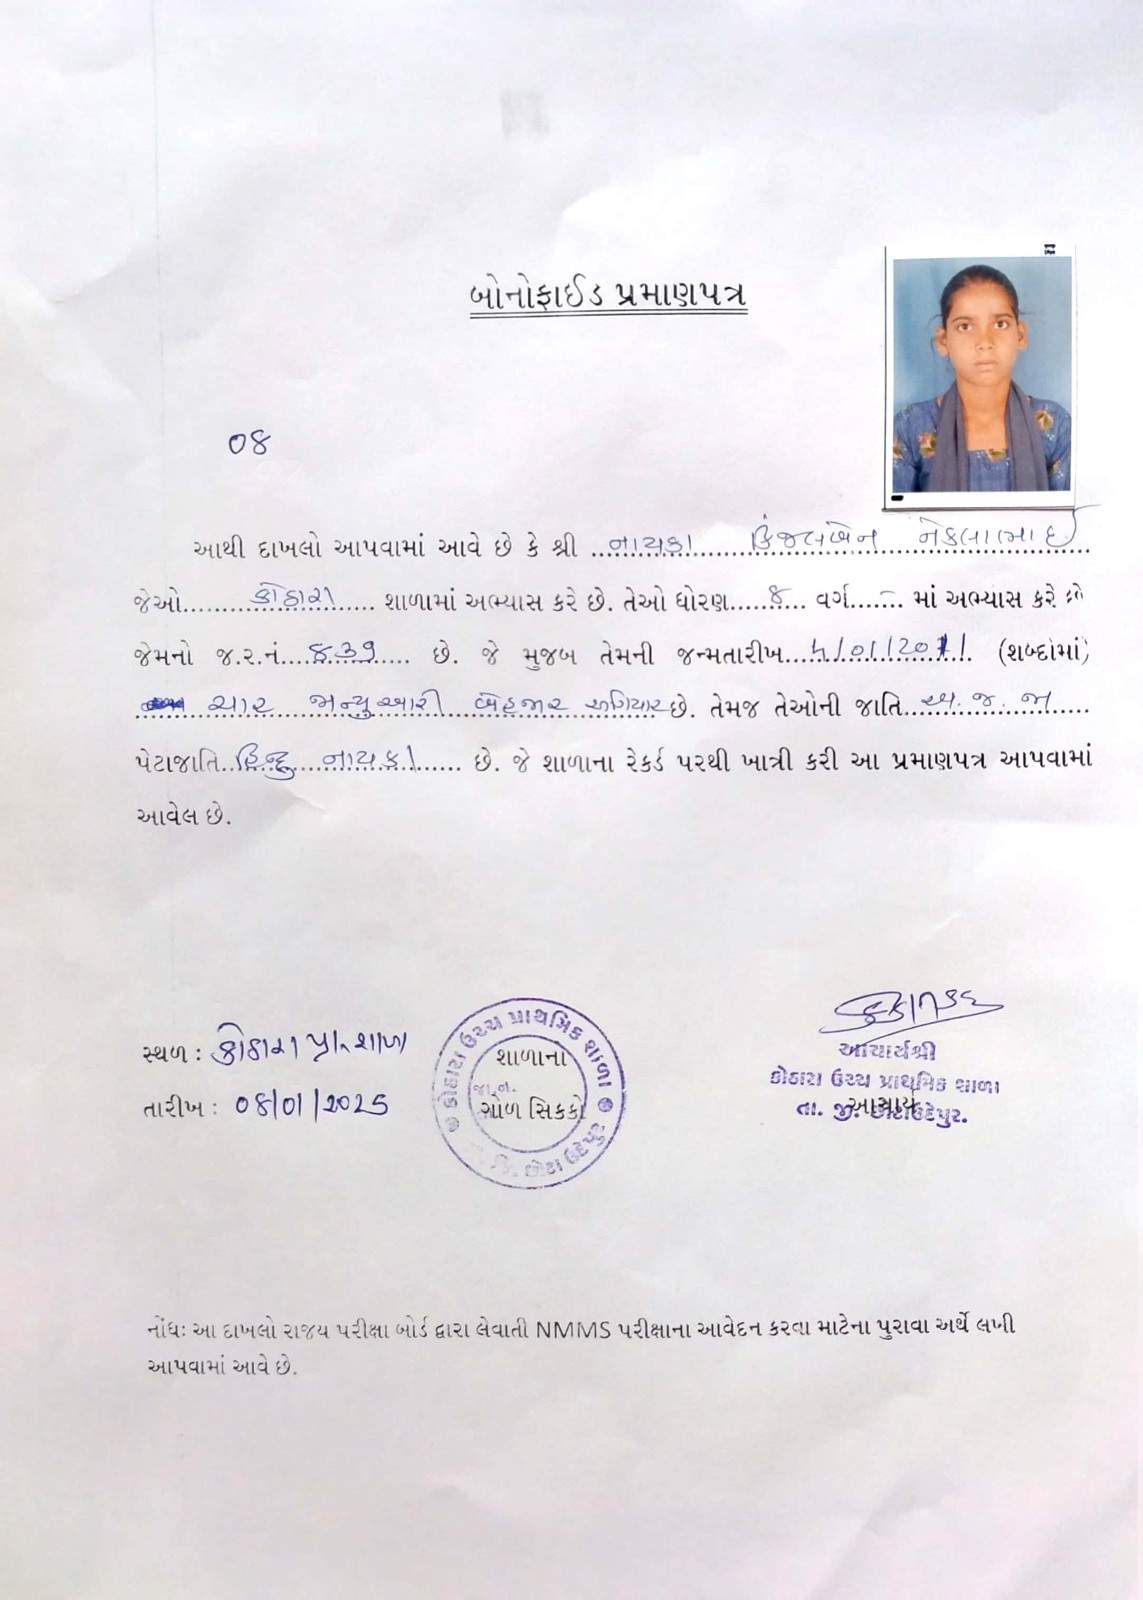 બોનોફાઈડ પ્રમાણપત્ર
૦૪
આથી દાખલો આપવામાં આવે છે કે શ્રી ...નાયકા કિંજલબેન નેકલાભાઈ
જેઓ......કોઠારા...... શાળામાં અભ્યાસ કરે છે. તેઓ ધોરણ.....૮.... વર્ગ....-... માં અભ્યાસ કરે છે
જેમનો જ.ર.નં....૮૩૭...... છે. જે મુજબ તેમની જન્મતારીખ...૪/૦૧/૨૦૧૧... (શબ્દોમાં)
ચાર જાન્યુઆરી બેહજાર અગિયાર છે. તેમજ તેઓની જાતિ...અ.જ.જા.....
પેટાજાતિ..હિન્દુ નાયકા...... છે. જે શાળાના રેકર્ડ પરથી ખાત્રી કરી આ પ્રમાણપત્ર આપવામાં
આવેલ છે.
સ્થળ : કોઠારા પ્રા. શાળા
તારીખ : ૦૪/૦૧/૨૦૨૫
કોઠારા ઉચ્ચ પ્રાથમિક શાળા
શાળાના
ગોળ સિક્કો
જા.ન.
છોટાઉદેપુર
આચાર્યશ્રી
કોઠારા ઉચ્ચ પ્રાથમિક શાળા
આચાર્ય
તા. જી. છોટાઉદેપુર.
નોંધઃ આ દાખલો રાજ્ય પરીક્ષા બોર્ડ દ્વારા લેવાતી NMMS પરીક્ષાના આવેદન કરવા માટેના પુરાવા અર્થે લખી
આપવામાં આવે છે.